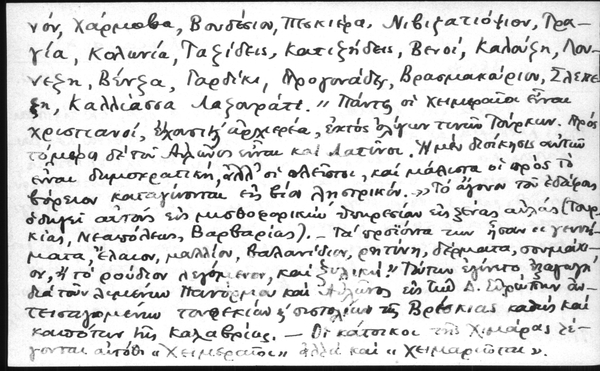 νόν, Χάρμοβα, Βουδέσιον, Πεκιερα, Νιβιζατιόψιον, Γρα-
γία, Κολωνία, Ταξίδεις, Κατιξήδεις, Βενοί, Καλούξη,
νεξη, Βένζα, Γαρδίκι, Δρογονάδες, Βρασμακαίριον, Σλεπε
ξη, Καλλιάσσα Λαζουράτι. " Πάντες οἱ Χειμεραῖοι εἶναι
χριστιανοί, ἑκάστης ἀρχιερέα, ἐκτὸς ὀλίγων τινῶν Τούρκων. Πρὸς
δὲ τὸν Αὐλῶνος εἶναι καὶ Λατῖνοι. Ἡ μὲν διοίκησις αὐτῶν
εἶναι δημοκρατική, ἀλλ' οἱ πλεῖστοι, καὶ μάλιστα οἱ πρὸς τὸ
βόρειον καταγίνονται εἰς βίον λῃστρικόν.» Τὸ ἄγονον τοῦ ἐδάφους
ὁδηγεῖ αὐτοὺς εἰς μισθοφορικὴν ὑπηρεσίαν εἰς ξένας αὐλὰς (Τουρ-
κίας, Νεαπόλεως, Βαρβαρίας). — Τὰ προϊόντα των ἦσαν « γεννή-
ματα, ἔλαιον, μαλλίον, βαλανίδιον, ρητίνη, δέρματα,
ον, ἢ τὸ ρούδιον λεγόμενον, καὶ ξυλική." Τούτων ἐγίνετο ἐξαγωγὴ
διὰ τῶν λιμένων Πανόρμου καὶ Αὐλῶνος εἰς τὴν Δ. Εὐρώπην ἀν-
τεισαγομένων τῆς Βρεσκίας καθὼς καὶ
καπότων τῆς Καλαβρίας. — Οἱ κάτοικοι τῆς Χιμάρας λέ-
γονται αὐτόθι « Χειμεραῖοι » ἀλλὰ καὶ « Χειμαριῶται ».